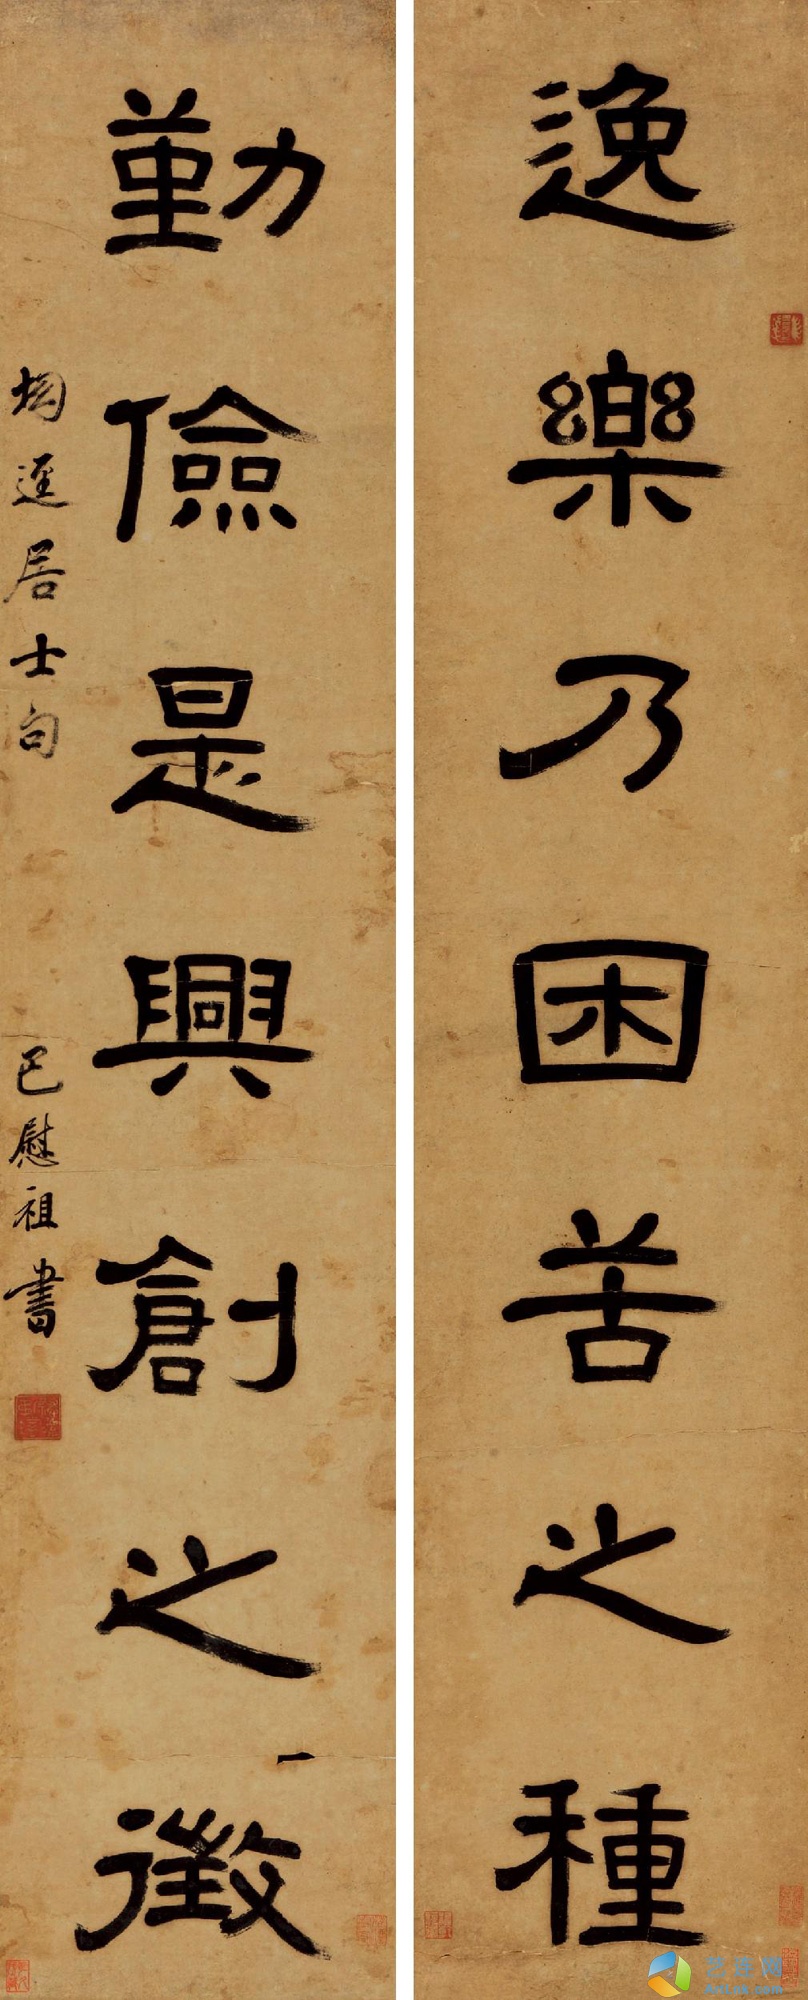 逸樂乃困苦之種
勤儉是興創之徵
居士句
巴慰祖書
艺连网